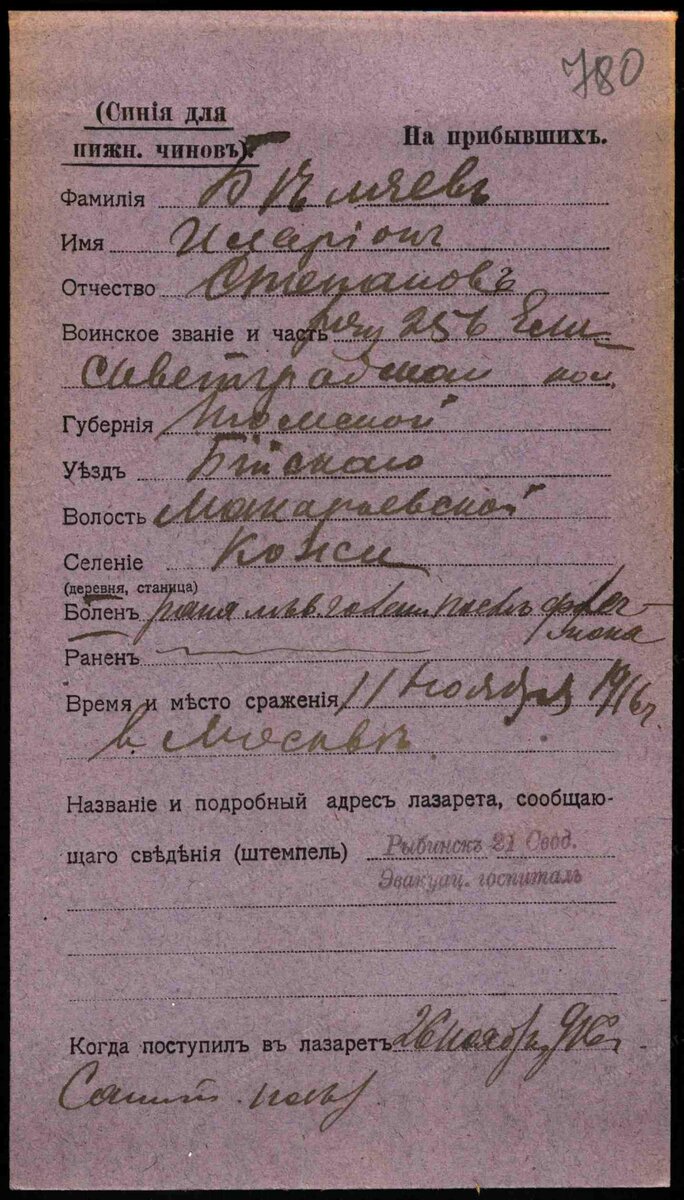 780
(Синія для
нижн. чиновъ).
На прибывшихъ.
Фамилія Бѣляевъ
Имя Иларіонъ
Отчество Степановъ
Воинское званіе и часть ряд 256 Ели-
саветградскій пол.
Губернія Томской
Уѣздъ Бійскаго
Волость Макарьевской
Селеніе Кожи
(деревня, станица)
Боленъ рана лѣв голени послѣ флег-
мона
Раненъ
Время и мѣсто сраженія 11 Ноября 1916 г.
в. Москвѣ
Названіе и подробный адресъ лазарета, сообщаю-
щаго свѣдѣнія (штемпель) Рыбинскъ 21 Свод.
Эвакуац. госпиталь
Когда поступилъ въ лазаретъ 26 ноября 916 г
Санит.